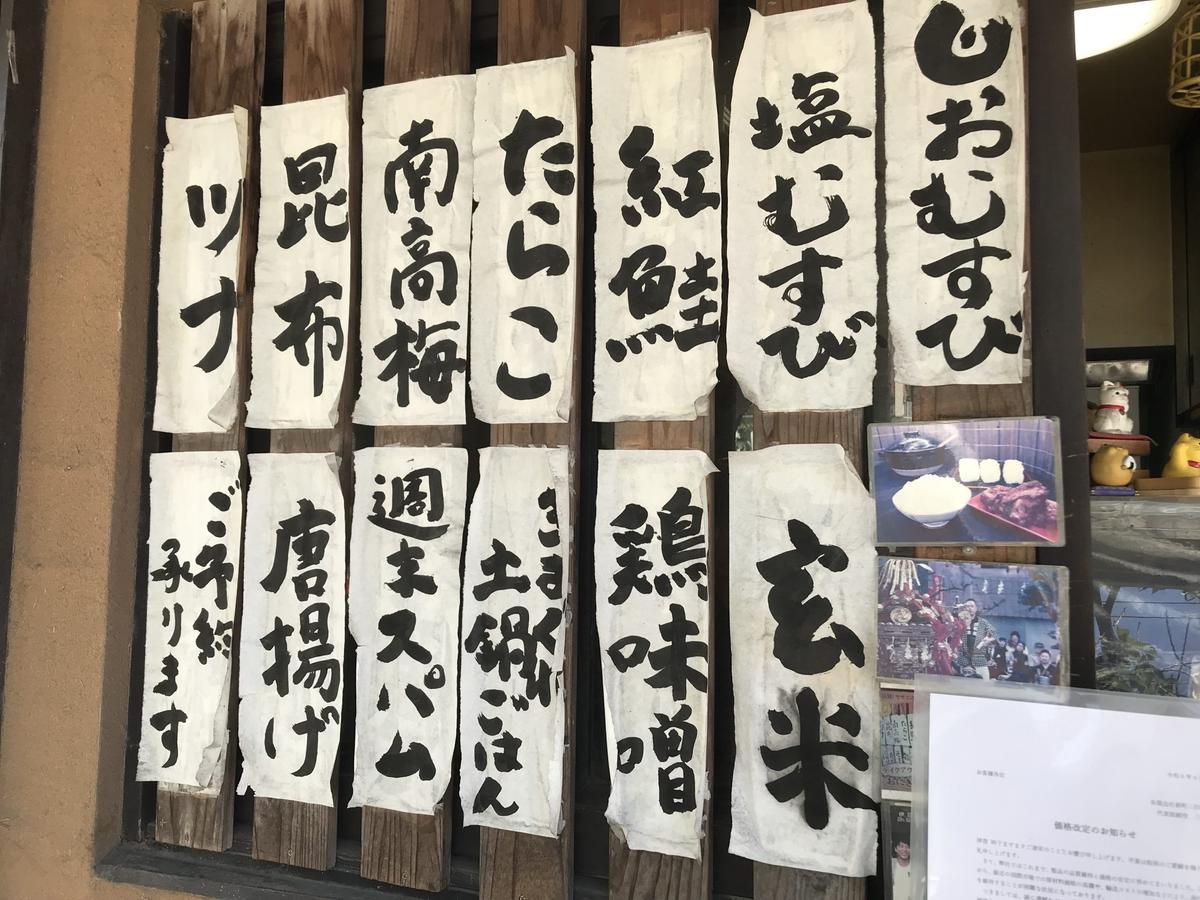 しおむすび
塩むすび
紅鮭
たらこ
南高梅
昆布
ツナ
玄米
鶏味噌
きまぐれ
土鍋ごはん
週末スパム
唐揚げ
ご予約
承ります
お客様各位
代表取締役
価格改定のお知らせ